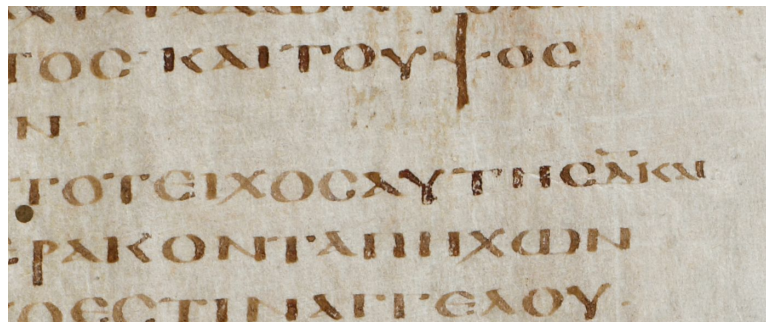 ΤΟϹ ΚΑΙΤΟΥΨΟϹ
Ν·
ΤΟΤΕΙΧΟϹΑΥΤΗϹ
ΡΑΚΟΝΤΑΠΗΧΩΝ
ΟΕϹΤΙΝΑΓΓΕΛΟΥ·